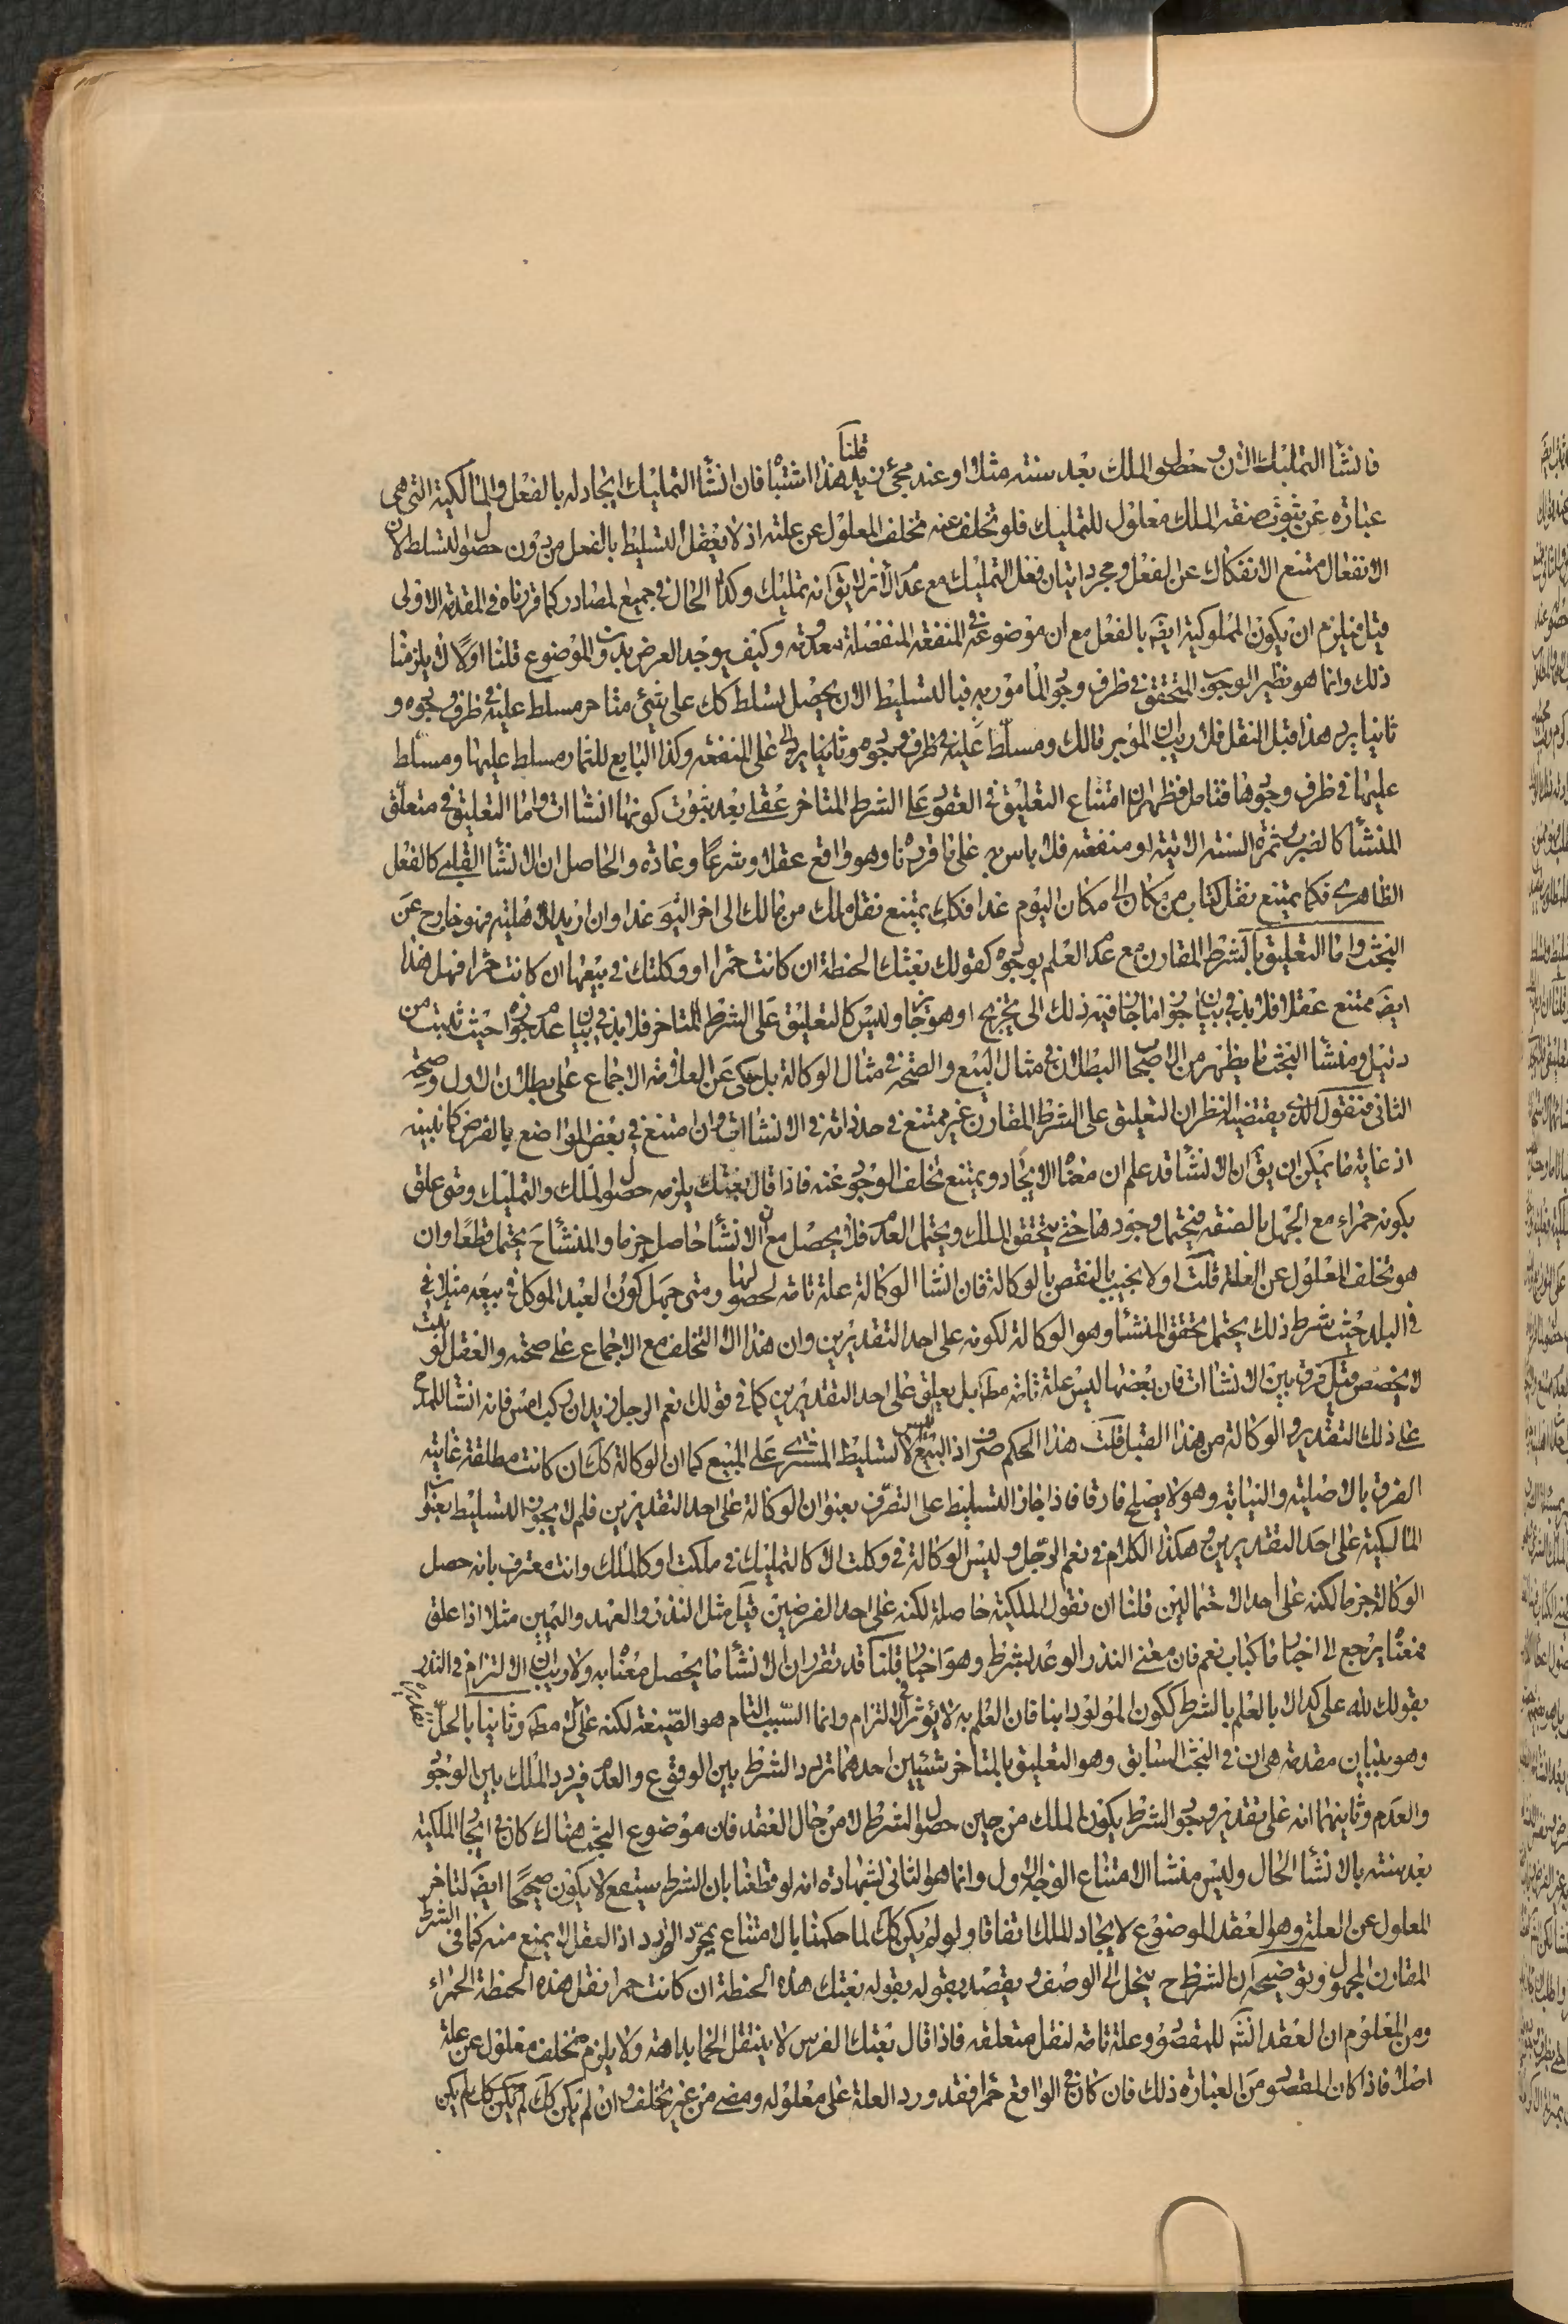 فانشأ التمليك الآن وحصول الملك بعد سنته مثلا او عند مجئ زيد قلنا هذا اشتباه فان انشأ التمليك ايجاد له بالفعل والمالكية التى هى
عبارة عن ثبوت صفة الملك معلول للتمليك فلو تخلف عنه تخلف المعلول عن علته اذ لا يعقل التسليط بالفعل من دون حصول التسلط لان
الانفعال ممتنع الانفكاك عن الفعل ومجرد اتيان فعل التمليك مع عدم الاثر لا يق انه تمليك وكذا الحال فى جميع المصادر كما قررناه فى المقدمة الاولى
قيل فيلزم ان يكون المملوكية ايضَ بالفعل مع ان موضوعه فى المنفعة المنفصلة معدوم وكيف يوجد العرض بدون الموضوع قلنا اولا لا يلزمنا
ذلك وانما هو نظير الوجوب المتحقق فى ظرف وجود المأمور به فبالتسليط الان يحصل تسلط كك على شئ متاخر مسلط عليه فى ظرف وجوده و
ثانيا يرد هذا قبل النقل فلا ريب ان الموجر مالك ومسلط عليه فى ظرف وجوده وثانيا يرد على المنفعة وكذا البايع للثمار مسلط عليها ومسلط
عليها فى ظرف وجودها فتامل فظهر ان امتناع التعليق فى العقود على الشرط المتاخر عقلى بعد ثبوت كونها انشاات واما التعليق فى متعلق
المنشأ كالضرب ثمرة السنة الاتية او منفعته فلا باس به على ما قررنا وهو واقع عقلا وشرعًا وعادة والحاصل ان الانشأ القلبى كالفعل
الظاهرى فكما يمتنع نقل كتاب من مكان الى مكان اليوم غدا فكك يمتنع نقل ملك من مالك الى اخر اليوم غدا وان اريد الاهلية فهو خارج عن
البحث واما التعليق بالشرط المقارن مع عدم العلم بوجوده كقولك بعتك الحنطة ان كانت حمرا او وكلتك فى بيعها ان كانت حمرا فهل هذا
ايضَ ممتنع عقلا فلا بد فى بيان جواز ما جاز فيه ذلك الى تخريج او هو جايز وليس كالتعليق على الشرط المتاخر فلا بد فى بيان عدم جوازه حيث ثبت من
دليل ومنشأ البحث ما يظهر من الاصحاب البطلان فى مثال البيع والصحة فى مثال الوكالة بل حكى عن العلامة الاجماع على بطلان الاول وصحة
الثانى فنقول الذى يقتضيه النظر ان التعليق على الشرط المقارن غير ممتنع فى حد ذاته فى الانشاات وان امتنع فى بعض المواضع بالفرض كما نبينه
اذ غاية ما يمكن ان يق ان الانشأ قد علم ان معناه الايجاد ويمتنع تخلف الوجود عنه فاذا قال بعتك يلزمه حصول الملك والتمليك ومتى علق
بكونه حمراء مع الجهل بالصفة فيحتمل وجودها حتى يتحقق الملك ويحتمل العدم فلا يحصل مع ان الانشأ حاصل جزما والمنشأ ح يحتمل قطعًا وان
هو تخلف المعلول عن العلة قلت اولا نجيب بالنقض بالوكالة فان انشاا الوكالة علة تامة لحصولها ومتى جهل كون العبد الموكل فى بيعه مثلا فى
فى البلد حيث شرط ذلك يحتمل تحقق المنشأ وهو الوكالة لكونه على احد التقديرين وان هذا الا التخلف مع الاجماع على صحته والعقل لو ثبت
لا يخصص قيل فرق بين الانشاات فان بعضها ليس علة تامة مطَ بل يعلق على احد التقديرين كما فى قولك نعم الرجل زيد ان ركب امس فانه انشأ للمدح
على ذلك التقدير والوكالة من هذا القبيل قلت هذا الحكم صرف اذ البيع ليس الا تسليط المشترى على المبيع كما ان الوكالة كك ان كانت مطلقة غايته
الفرق بالاصلية والنيابة وهو لا يصلح فارقا فاذا جاز التسليط على التصرف بعنوان الوكالة على احد التقديرين فلم لا يجوز التسليط بعنوان
المالكية على احد التقديرين وهكذا الكلام فى نعم الرجل وليس الوكالة فى وكلت الا كالتمليك فى ملكت او كالملك وانت معترف بانه حصل
الوكالة جزما لكنه على احد الاحتمالين قلنا ان نقول الملكية حاصلة لكنه على احد الفرضين قيل مثل النذر والعهد واليمين مثلا اذا علق
فمعناه يرجع الى اخبار ما كباب نعم فان معنى النذر الوعد بشرط وهو اخبار قلنا قد تقرر ان الانشأ ما يحصل معناه به ولا ريب ان الالتزام فى النذر
بقولك لله على كذا لا بالعلم بالشرط ككون المولود ابنا فان العلم به لا يؤثر فى الالتزام وانما السبب التام هو الصيغة لكنه على لا مطَ وثانيا بالحل
وهو بتبيان مقدمة هى ان فى البحث السابق وهو التعليق بالمتاخر شيئين احدهما تردد الشرط بين الوقوع والعدم فيردد الملك بين الوجود
والعدم وثانيهما انه على تقدير وجود الشرط يكون الملك من حين حصول الشرط لا من حال العقد فان موضوع البحث هناك كان فى ايجاد الملكية
بعد سنته بالانشأ الحال وليس منشأ الامتناع الوجه الاول وانما هو الثانى لشهادة انه لو قطعنا بان الشرط سيقع لا يكون صحيحًا ايضَ لتاخر
المعلول عن العلة وهو العقد الموضوع لايجاد الملك اتفاقا ولو لم يكن كك لما حكمنا بالامتناع بمجرد التردد اذ العقل لا يمنع منه كما فى الشرط
المقارن المجهول وتوضيحه ان الشرط ح ينحل الى الوصف ويقصد بقوله بقوله بعتك هذه الحنطة ان كانت حمرا نقل هذه الحنطة الحمراء
ومن المعلوم ان العقد انشَ للمقصود وعلة تامة لنقل متعلقه فاذا قال بعتك الفرس لا ينتقل الحمار بداهة ولا يلزم تخلف معلول عن علة
اصلا فاذا كان المقصود من العبارة ذلك فان كان فى الواقع حمرا فقد ورد العلة على معلوله ومضى من غير تخلف وان لم يكن كك لم يكن كك لم يكن